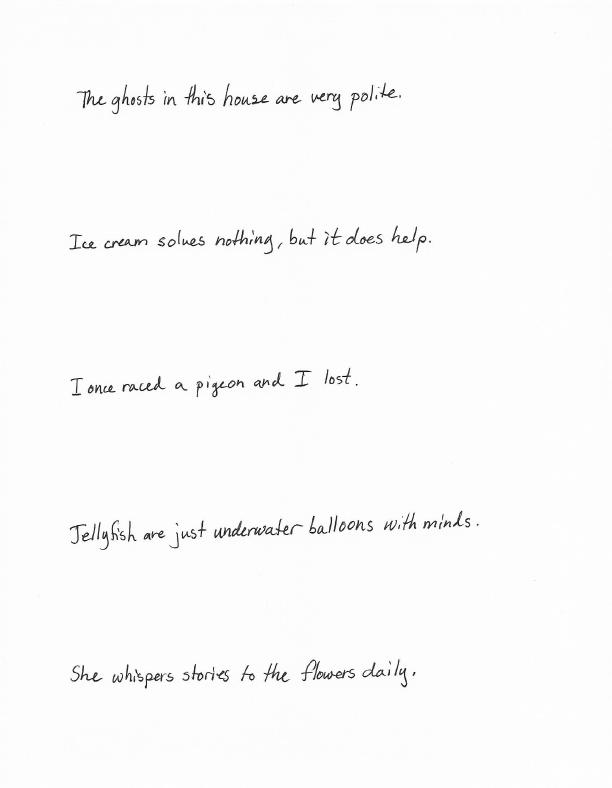 The ghosts in this house are very polite.
Ice cream solves nothing, but it does help.
I once raced a pigeon and I lost.
Jellyfish are just underwater balloons with minds.
She whispers stories to the flowers daily.